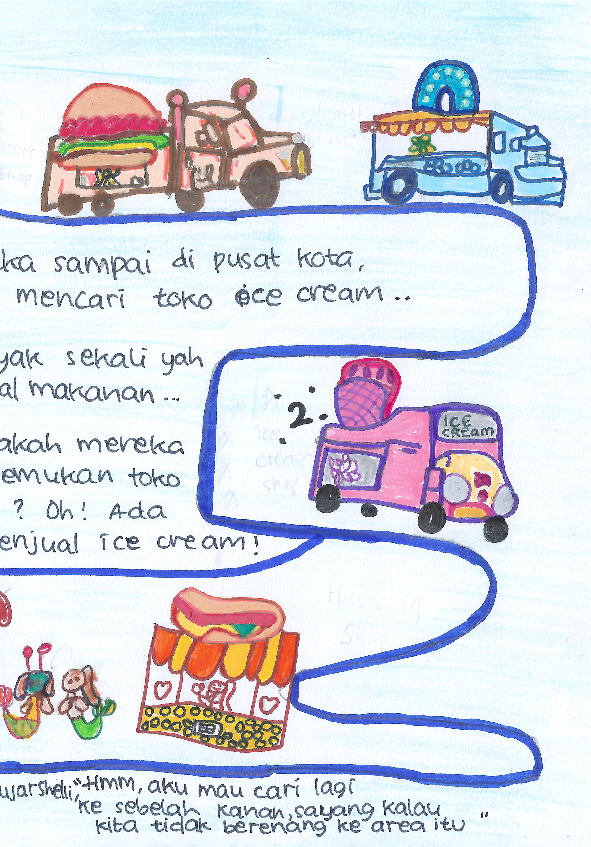 ka sampai di pusat kota,
mencari toko ice cream ..
yak sekali yah
al makanan ...
akah mereka
emukan toko
? Oh! Ada
enjual ice cream!
2
ICE
CREAM
ujar Shelli, "Hmm, aku mau cari lagi
ke sebelah kanan, sayang kalau
kita tidak berenang ke area itu "